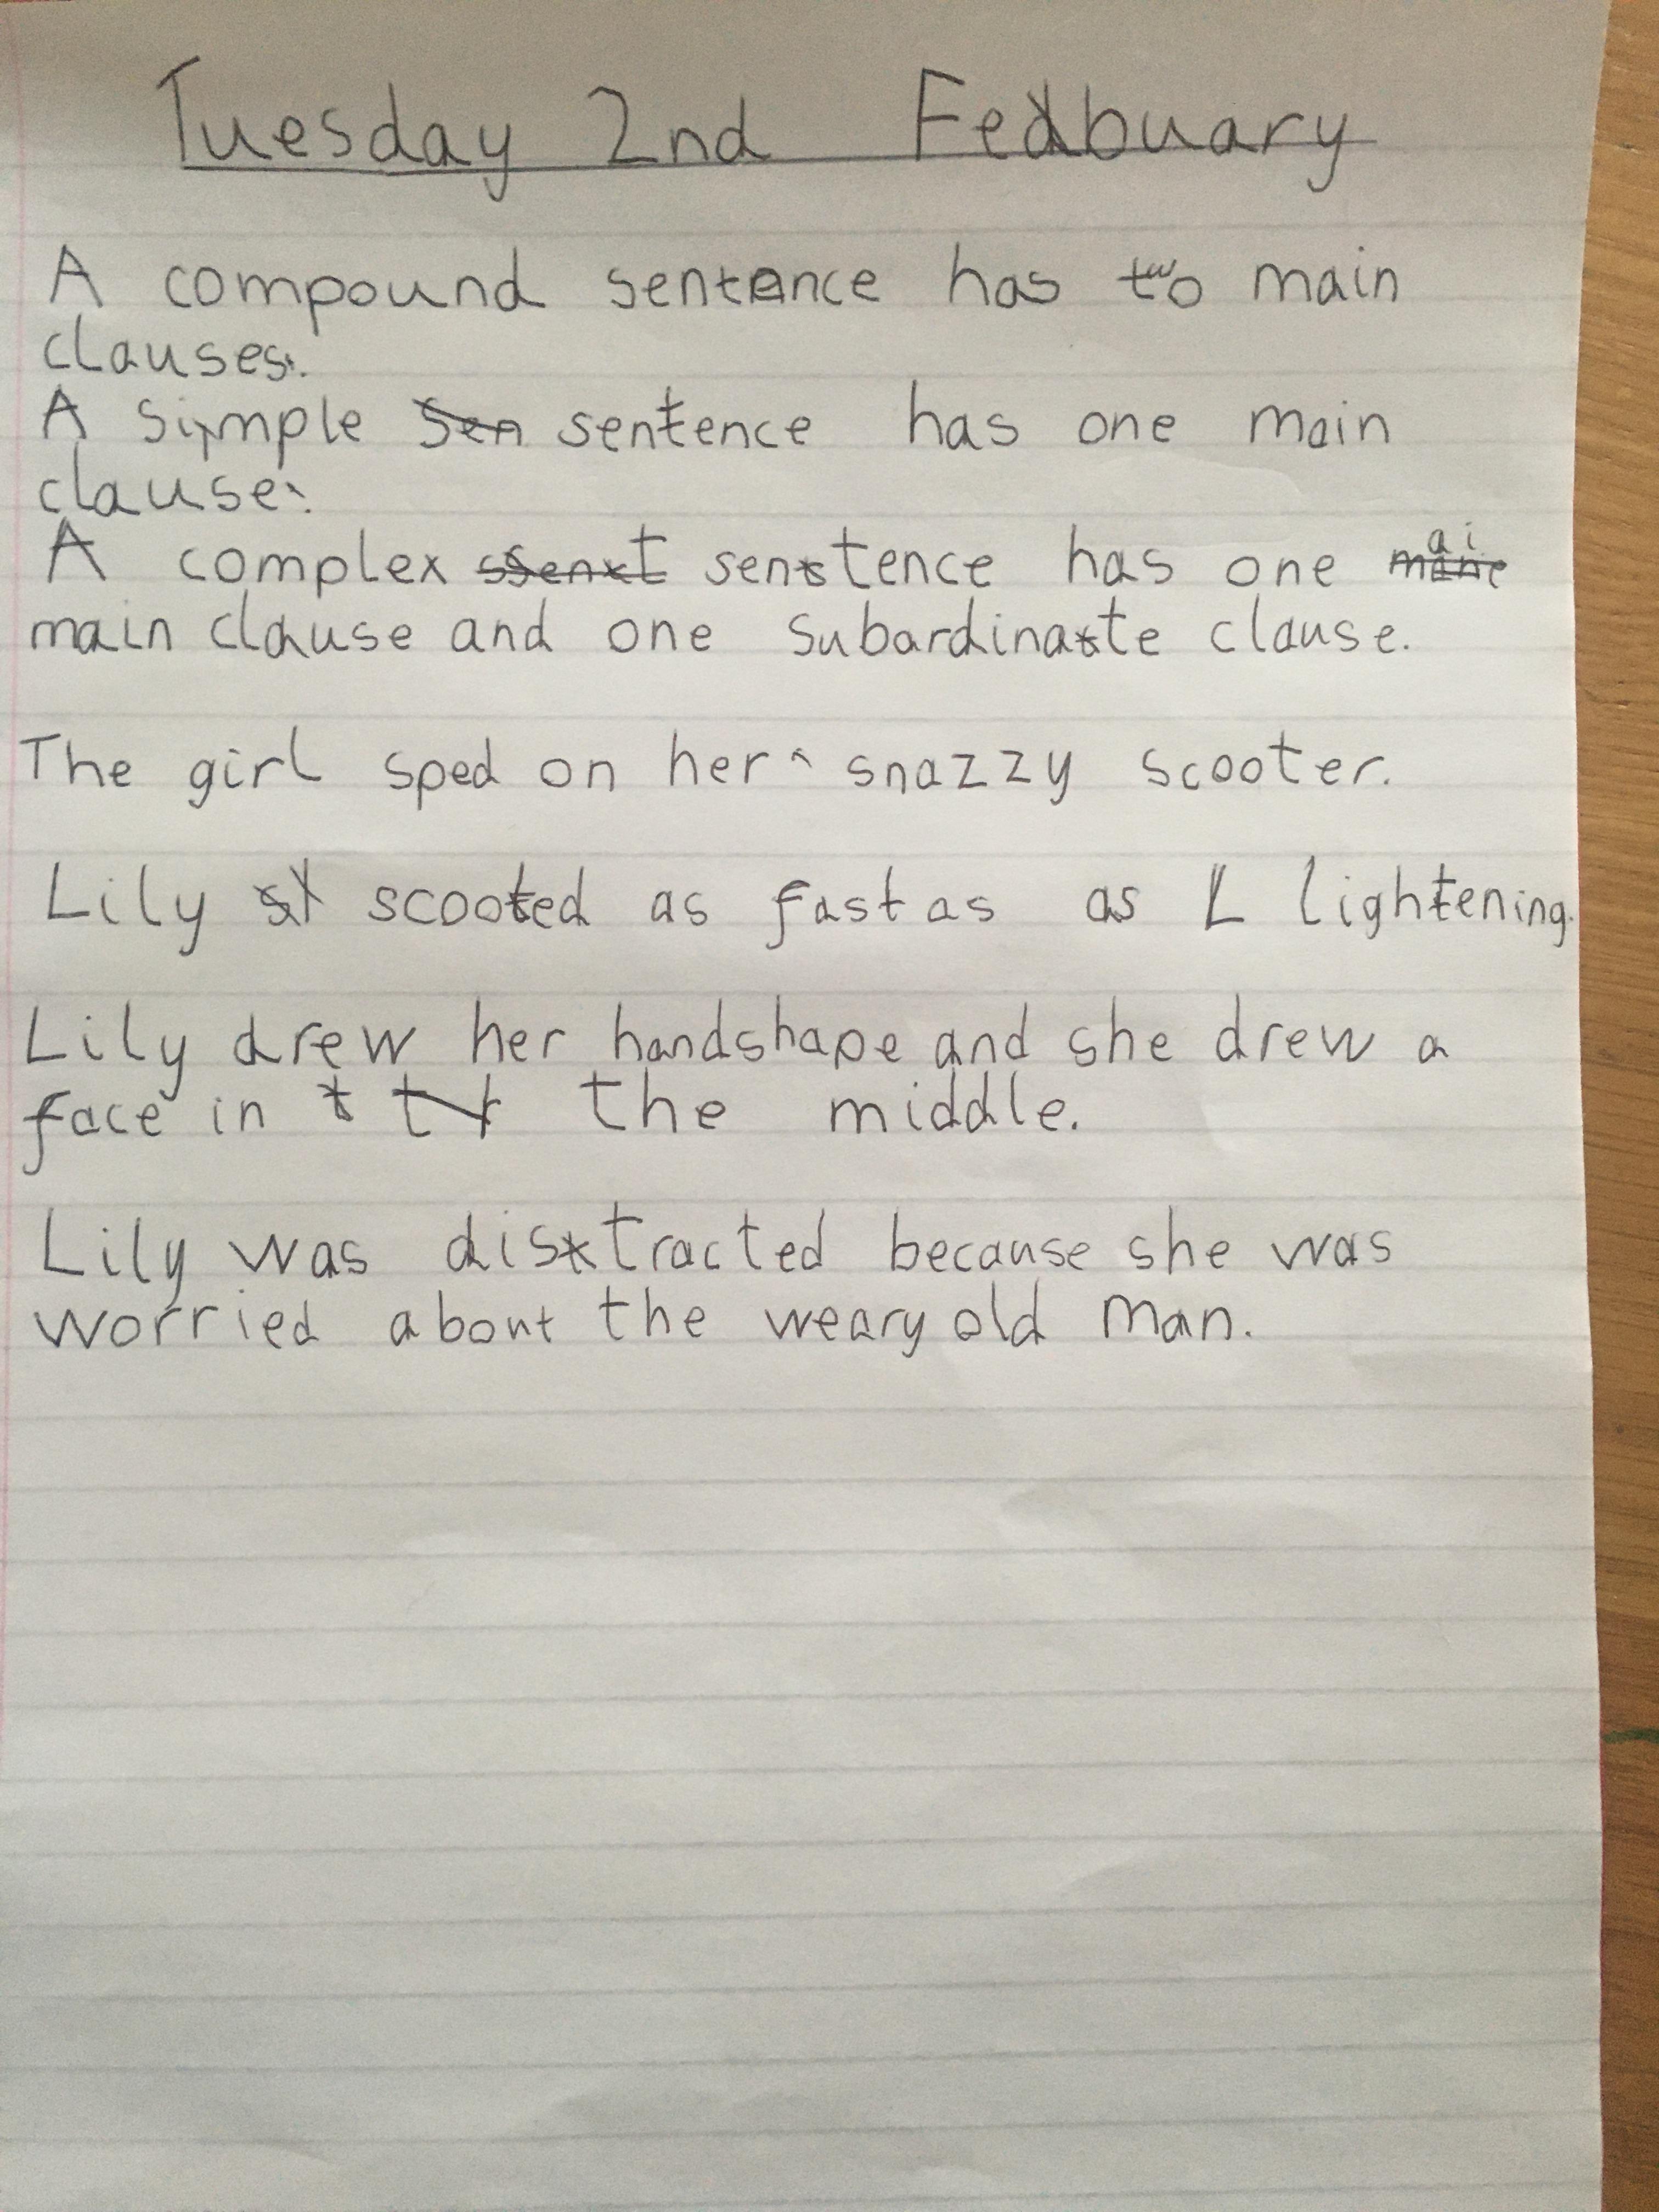 Tuesday 2nd Febuary
A compound sentence has two main
clauses.
A simple sentence has one main
clause.
A complex sentence has one
main clause and one subardinate clause.
The girl sped on her snazzy scooter.
Lily scooted as fast as as L lightening.
Lily drew her handshape and she drew a
face in t the middle.
Lily was distracted because she was
worried about the weary old man.